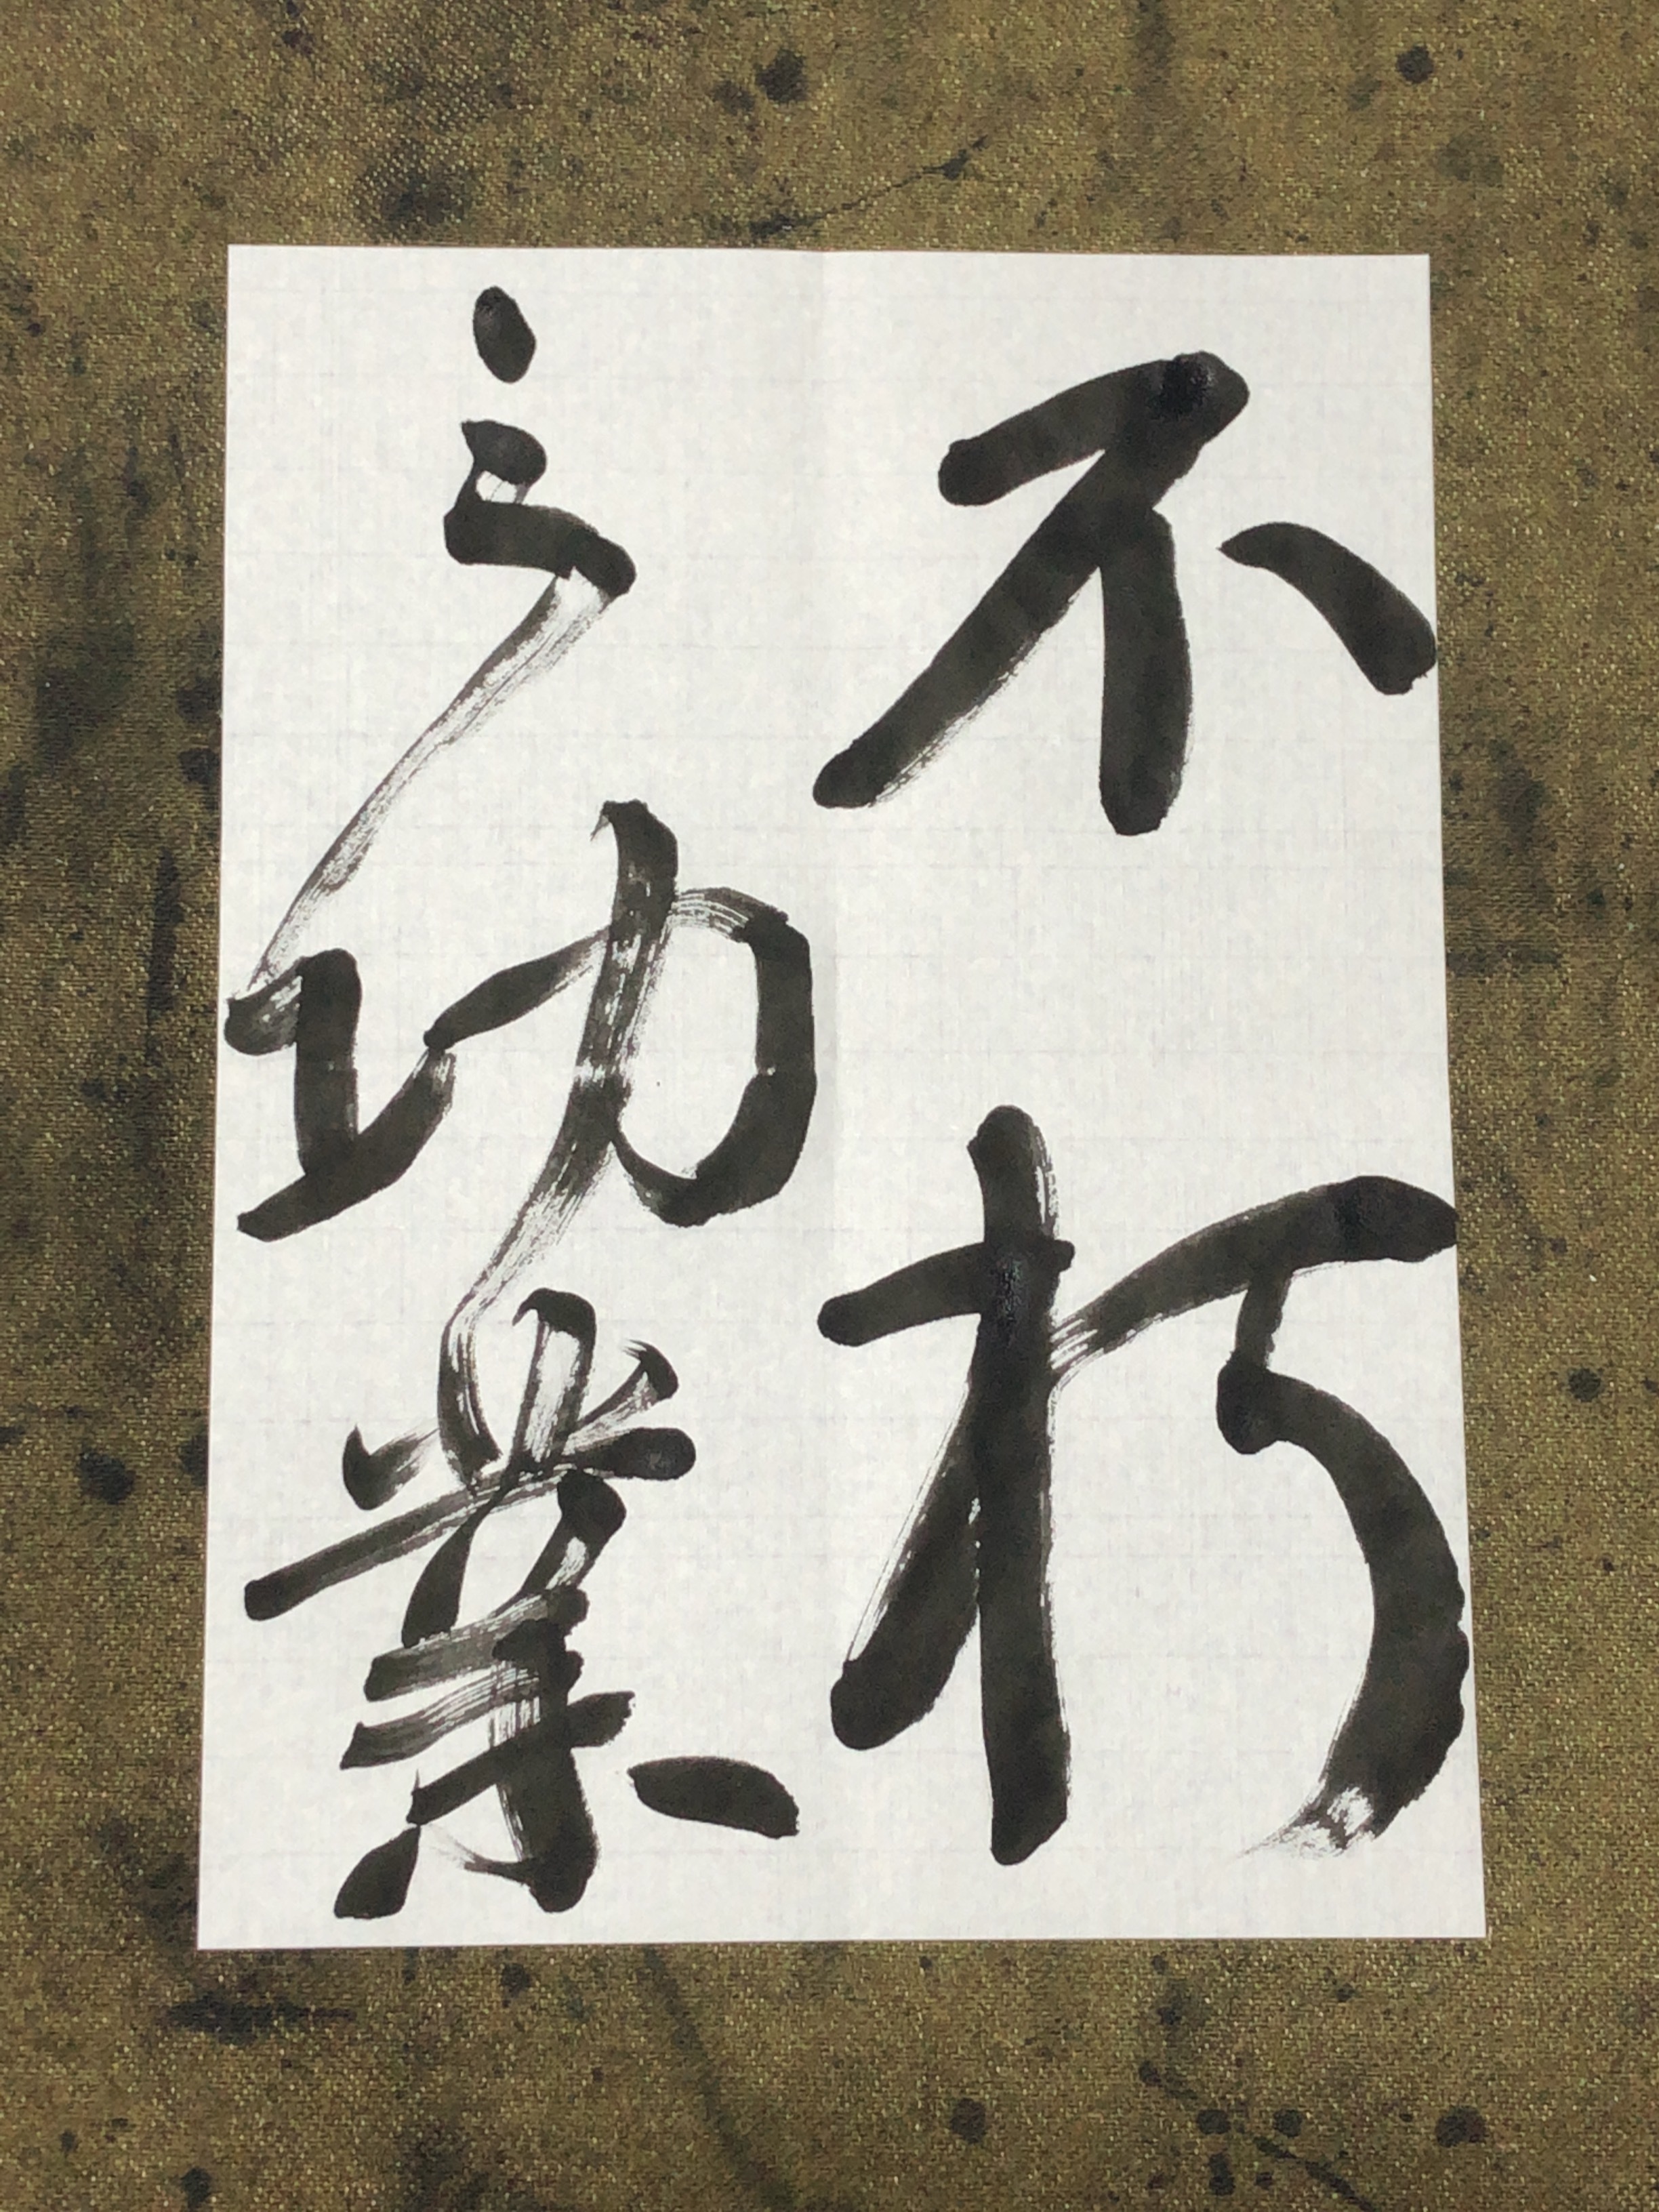 不朽
之功業